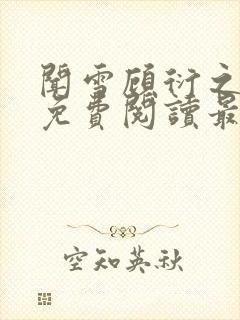 聞雪顧衍之
免費閱讀最
空知英秋